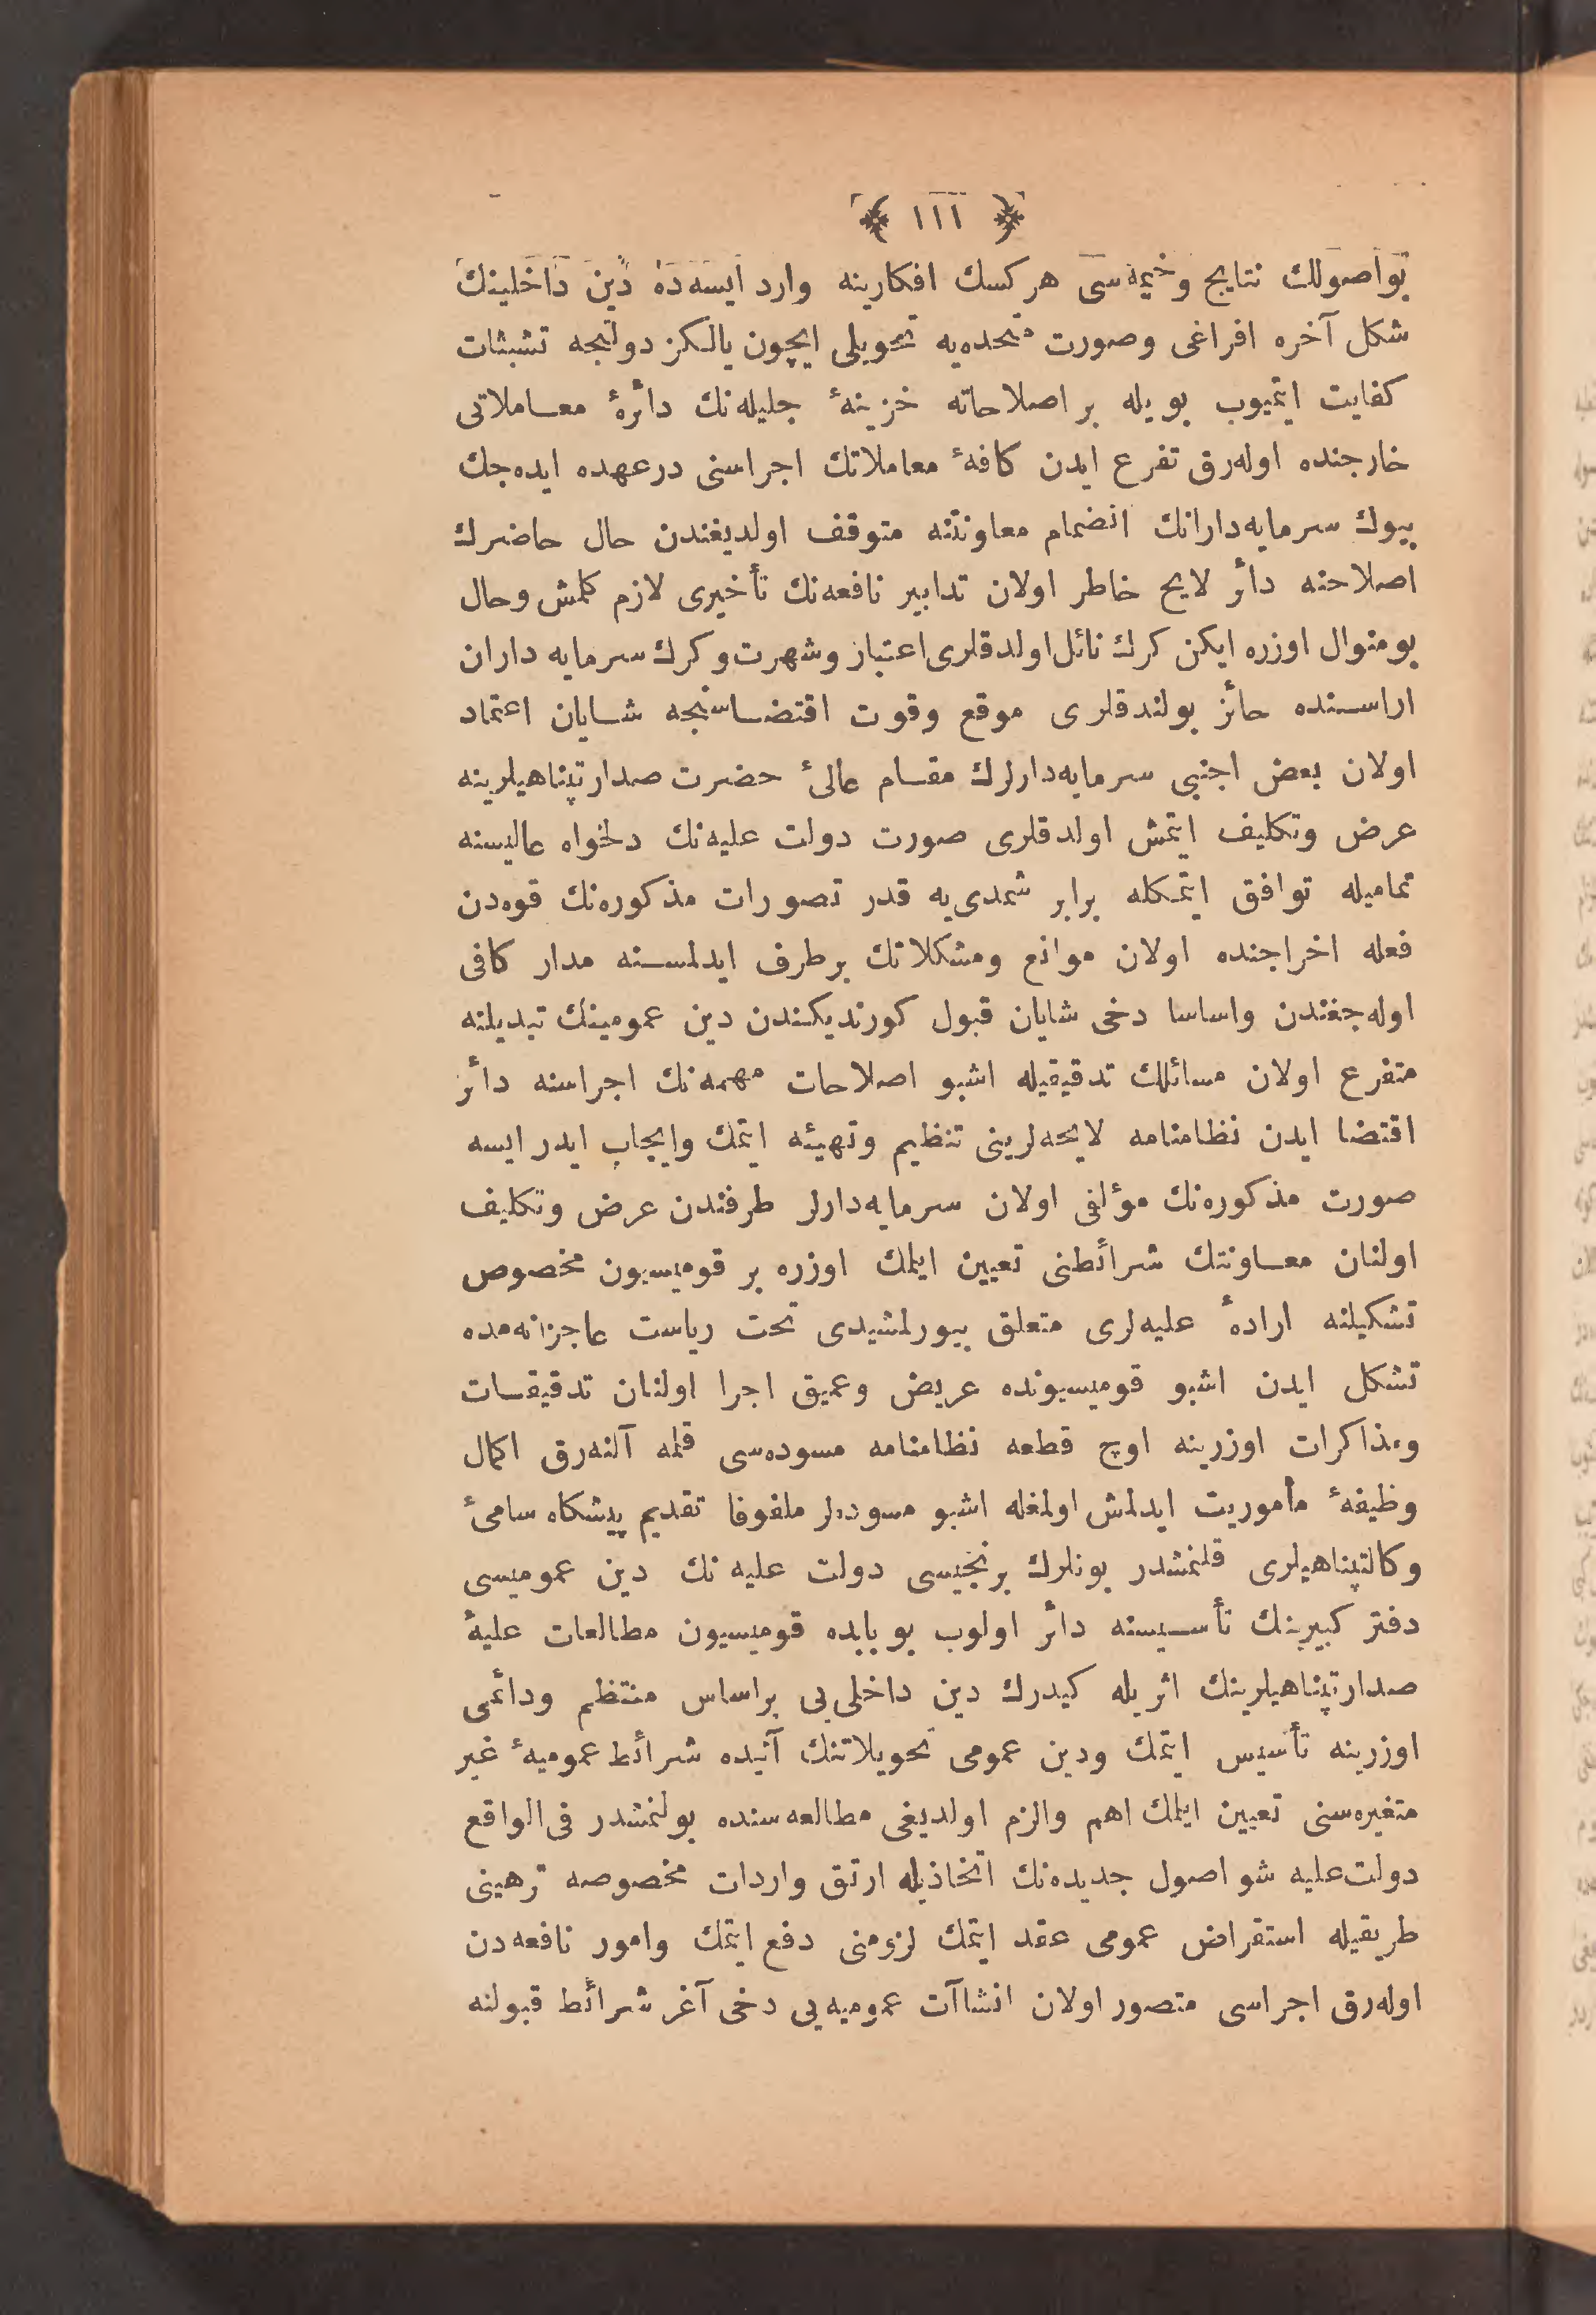 ﴿ ١١١ ﴾
بواصوللك نتايج وخيمه‌سى هركسك افكارينه وارد ايسه‌ده دين داخلينك
شكل آخره افراغى وصورت متحده‌يه تحويلى ايچون يالكز دولتجه تشبثات
كفايت ايتميوب بويله بر اصلاحاته خزينهٔ جليله‌نك دائرهٔ معاملاتى
خارجنده اوله‌رق تفرع ايدن كافهٔ معاملاتك اجراسنى درعهده ايده‌جك
بيوك سرمايه‌دارانك انضمام معاونتنه متوقف اولديغندن حال حاضرك
اصلاحنه دائر لايح خاطر اولان تدابير نافعه‌نك تأخيرى لازم كلمش وحال
بومنوال اوزره ايكن كرك نائل اولدقلرى اعتبار وشهرت وكرك سرمايه داران
اراسنده حائز بولندقلرى موقع وقوت اقتضاسنجه شايان اعتماد
اولان بعض اجنبى سرمايه‌دارلرك مقام عالئ حضرت صدارتپناهيلرينه
عرض وتكليف ايتمش اولدقلرى صورت دولت عليه‌نك دلخواه عاليسنه
تماميله توافق ايتمكله برابر شمدى‌يه قدر تصورات مذكوره‌نك قوه‌دن
فعله اخراجنده اولان موانع ومشكلاتك برطرف ايدلمسنه مدار كافى
اوله‌جغندن واساسا دخى شايان قبول كورنديكندن دين عمومينك تبديلنه
متفرع اولان مسائلك تدقيقيله اشبو اصلاحات مهمه‌نك اجراسنه دائر
اقتضا ايدن نظامنامه لايحه‌لرينى تنظيم وتهيئه ايتمك وايجاب ايدر ايسه
صورت مذكوره‌نك مؤلفى اولان سرمايه‌دارلر طرفندن عرض وتكليف
اولنان معاونتك شرائطنى تعيين ايلمك اوزره بر قوميسيون مخصوص
تشكيلنه ارادهٔ عليه‌لرى متعلق بيورلمشيدى تحت رياست عاجزانه‌مده
تشكل ايدن اشبو قوميسيونده عريض وعميق اجرا اولنان تدقيقات
ومذاكرات اوزرينه اوچ قطعه نظامنامه مسوده‌سى قلمه آلنه‌رق اكمال
وظيفهٔ مأموريت ايدلمش اولمغله اشبو مسوده‌لر ملفوفا تقديم پيشكاه سامئ
وكالتپناهيلرى قلنمشدر بونلرك برنجيسى دولت عليه نك دين عموميسى
دفتر كبيرينك تأسيسنه دائر اولوب بو بابده قوميسيون مطالعات عليهٔ
صدارتپناهيلرينك اثريله كيدرك دين داخلى‌يى براساس منتظم ودائمى
اوزرينه تأسيس ايتمك ودين عمومى تحويلاتنك آتيده شرائط عموميهٔ غير
متغيره‌سنى تعيين ايلمك اهم والزم اولديغى مطالعه‌سنده بولنمشدر فى‌الواقع
دولت‌عليه شو اصول جديده‌نك اتخاذيله ارتق واردات مخصوصه ترهينى
طريقيله استقراض عمومى عقد ايتمك لزومنى دفع ايتمك وامور نافعه‌دن
اوله‌رق اجراسى متصور اولان انشاآت عموميه‌يى دخى آغر شرائط قبولنه